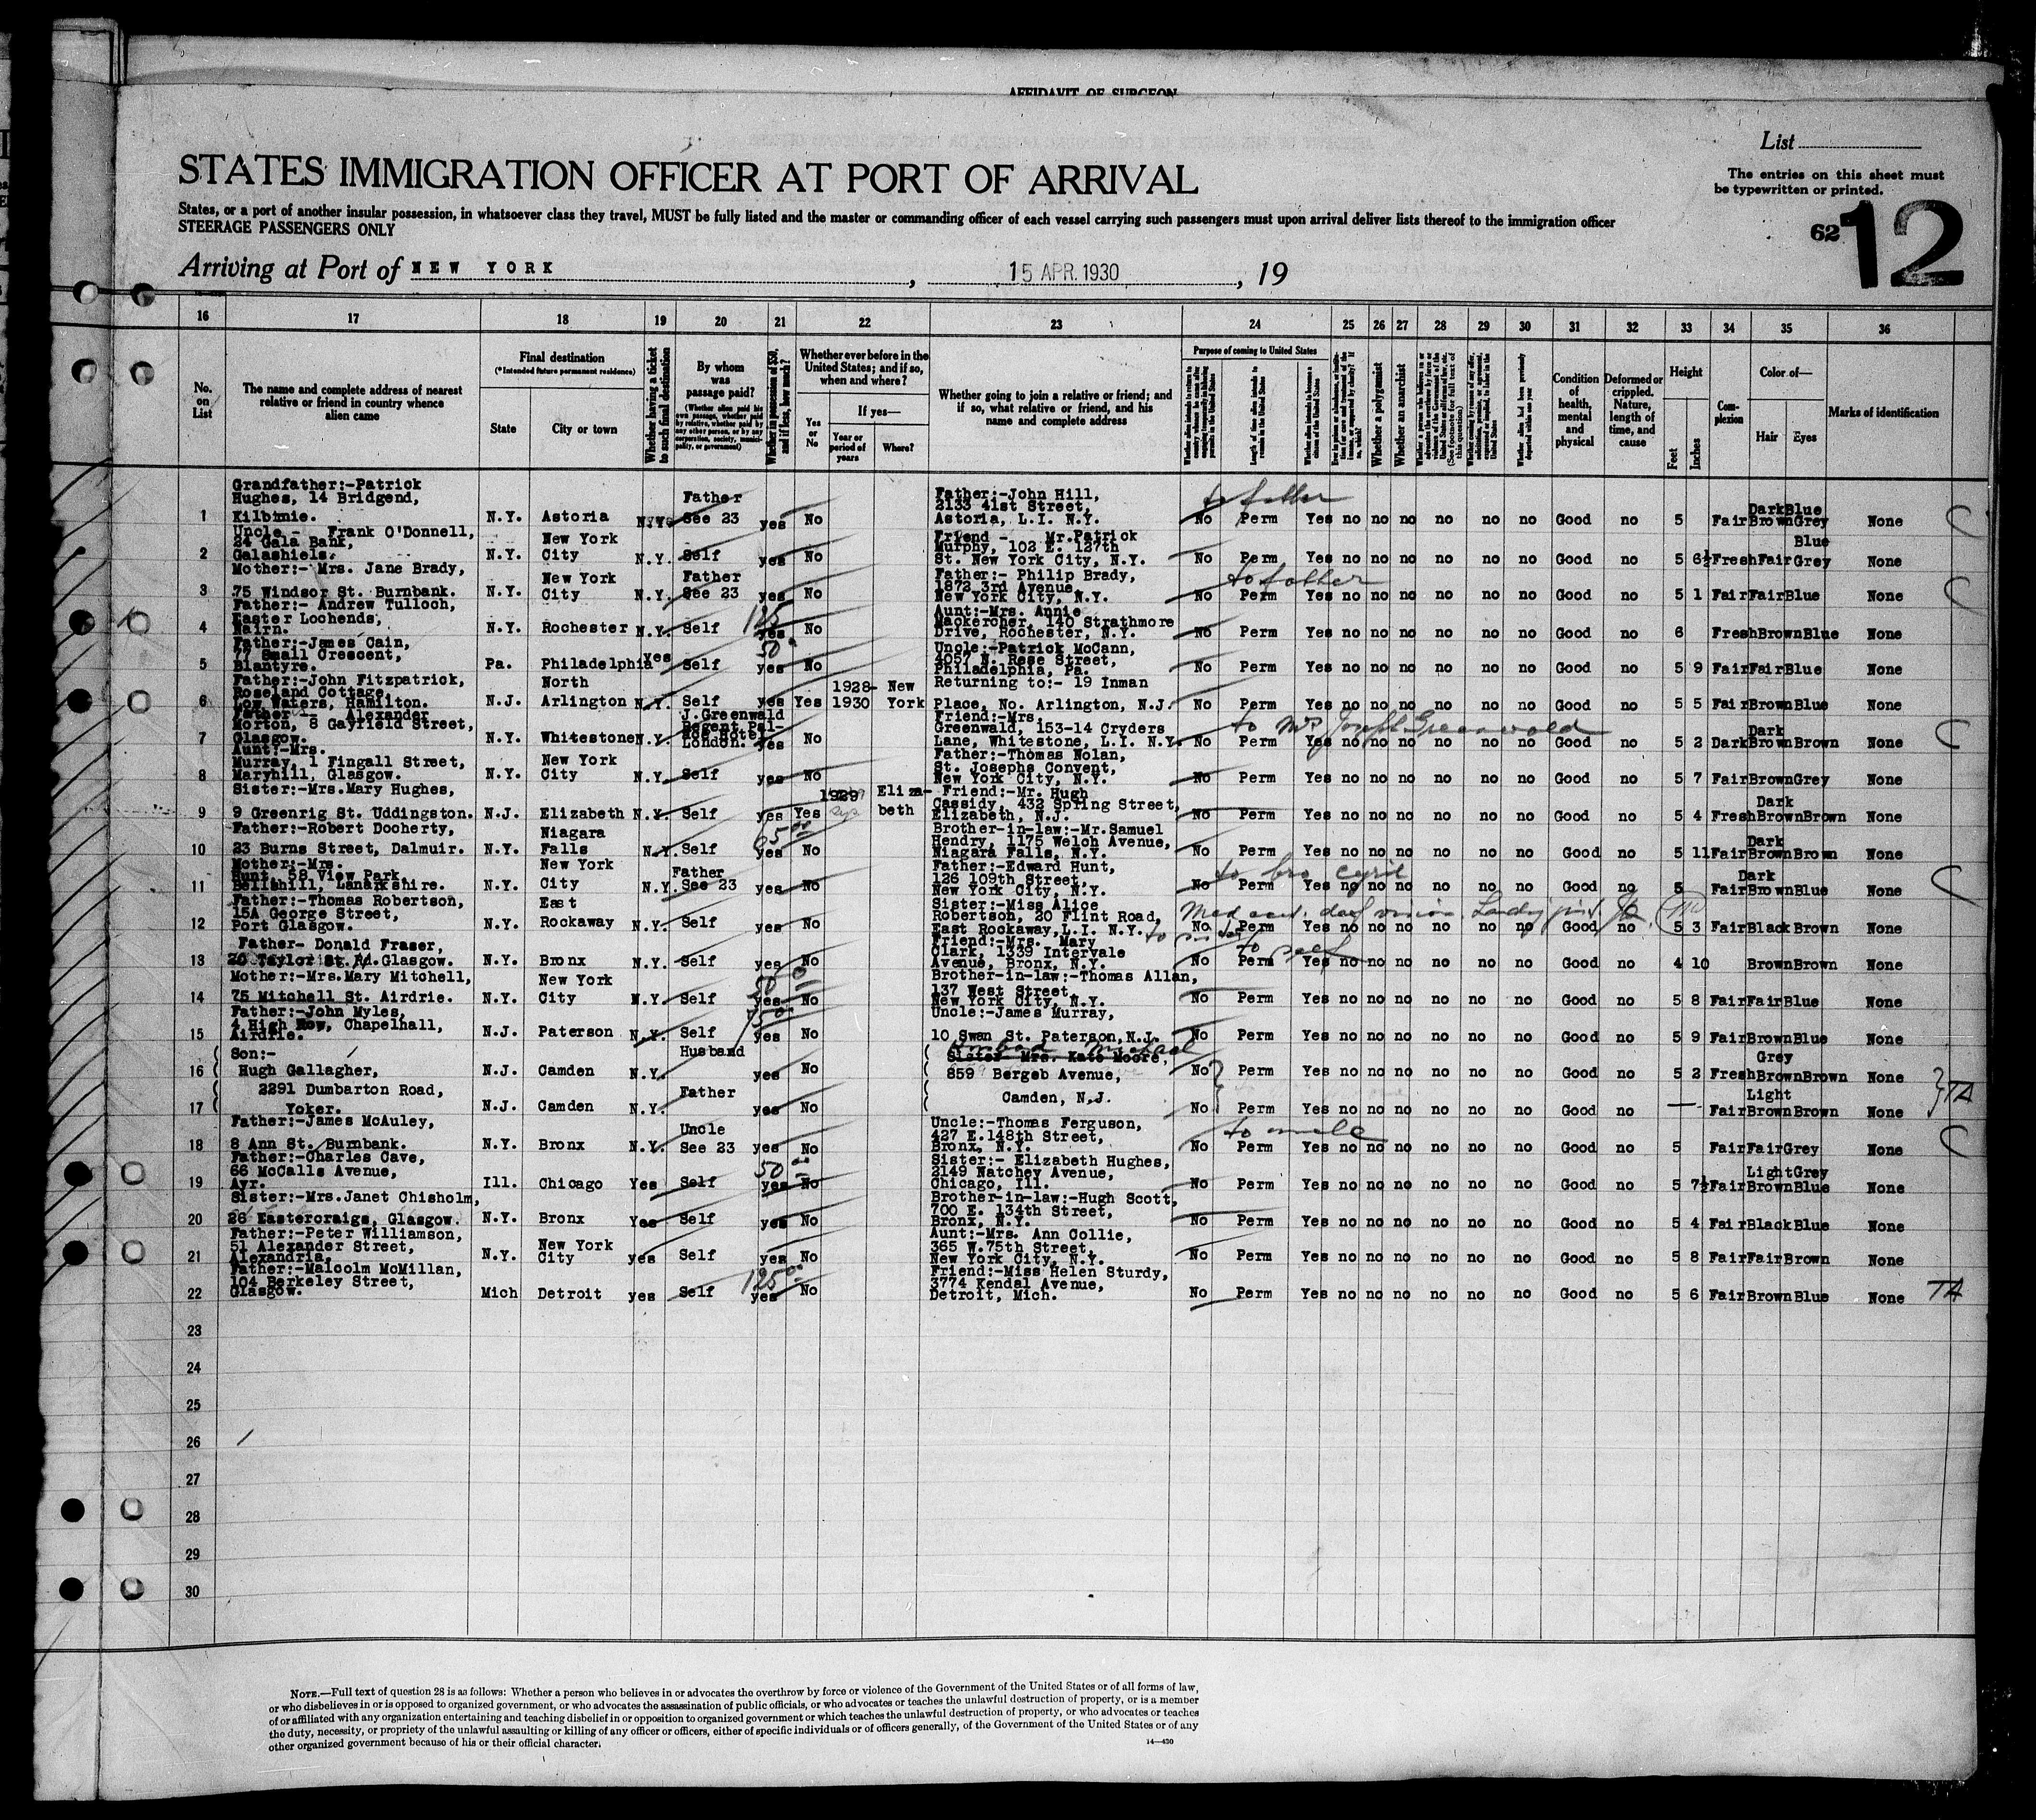 AFFIDAVIT OF SURGEON
List
STATES IMMIGRATION OFFICER AT PORT OF ARRIVAL
The entries on this sheet must
be typewritten or printed.
States, or a port of another insular possession, in whatsoever class they travel, MUST be fully listed and the master or commanding officer of each vessel carrying such passengers must upon arrival deliver lists thereof to the immigration officer
STEERAGE PASSENGERS ONLY
62 12
Arriving at Port of NEW YORK, 15 APR. 1930, 19
16 17 18 19 20 21 22 23 24 25 26 27 28 29 30 31 32 33 34 35 36
No. on List
The name and complete address of nearest relative or friend in country whence alien came
Final destination
(*Intended future permanent residence)
State
City or town
Whether having a ticket to such final destination
By whom was passage paid?
(Whether alien paid his own passage, whether paid by relative, whether paid by any other person, or by any corporation, society, municipality, or government)
Whether in possession of $50, and if less, how much?
Whether ever before in the United States; and if so, when and where?
Yes or No
If yes—
Year or period of years
Where?
Whether going to join a relative or friend; and if so, what relative or friend, and his name and complete address
Purpose of coming to United States
Length of time alien intends to remain in the United States
Whether alien intends to become a citizen of the United States
Whether a polygamist
Whether an anarchist
Condition of health, mental and physical
Deformed or crippled. Nature, length of time, and cause
Height
Feet
Inches
Complexion
Color of—
Hair
Eyes
Marks of identification
1 Grandfather:-Patrick Hughes, 14 Bridgend, Kilbinie. N.Y. Astoria Father See 23 yes No Father:-John Hill, 2133 41st Street, Astoria, L.I. N.Y. to father No Perm Yes no no no no no no Good no 5 Fair DarkBrown BlueGrey None
2 Uncle - Frank O'Donnell, 24 Gala Bank, Galashiels. N.Y. New York City N.Y. Self yes No Friend - Mr.Patrick Murphy, 102 E. 127th St. New York City, N.Y. No Perm Yes no no no no no no Good no 5 6½ Fresh Fair Blue Grey None
3 Mother:- Mrs. Jane Brady, 75 Windsor St. Burnbank. N.Y. New York City N.Y. Father See 23 yes No Father:- Philip Brady, 1872 3rd Avenue, New York City, N.Y. to father No Perm Yes no no no no no no Good no 5 1 Fair Fair Blue None
4 Father:- Andrew Tulloch, Easter Lochends, Nairn. N.Y. Rochester N.Y. Self 125 yes No Aunt:-Mrs. Annie Mackercher, 140 Strathmore Drive, Rochester, N.Y. No Perm Yes no no no no no no Good no 6 Fresh Brown Blue None
5 Father:-James Cain, 77 Small Crescent, Blantyre. Pa. Philadelphia yes Self 50 yes No Uncle:-Patrick McCann, 4057 N. Rose Street, Philadelphia, Pa. No Perm Yes no no no no no no Good no 5 9 Fair Fair Blue None
6 Father:-John Fitzpatrick, Roseland Cottage, Low Waters, Hamilton. N.J. North Arlington N.Y. Self yes Yes 1928-1930 New York Returning to:- 19 Inman Place, No. Arlington, N.J. No Perm Yes no no no no no no Good no 5 5 Fair Brown Blue None
7 Father:- Alexander Morton, 8 Gayfield Street, Glasgow. N.Y. Whitestone N.Y. J.Greenwald Regent Palace Hotel London. Yes No Friend:-Mrs. Greenwald, 153-14 Cryders Lane, Whitestone, L.I. N.Y. to Mr Joseph Greenwald No Perm Yes no no no no no no Good no 5 2 Dark Dark Brown Brown None
8 Aunt:-Mrs. Murray, 1 Fingall Street, Maryhill, Glasgow. N.Y. New York City N.Y. Self yes No Father:-Thomas Nolan, St. Josephs Convent, New York City, N.Y. No Perm Yes no no no no no no Good no 5 7 Fair Brown Grey None
9 Sister:-Mrs.Mary Hughes, 9 Greenrig St. Uddingston. N.J. Elizabeth N.Y. Self yes Yes 1929 Elizabeth Friend:-Mr. Hugh Cassidy, 432 Spring Street, Elizabeth, N.J. No Perm Yes no no no no no no Good no 5 4 Fresh Dark Brown Brown None
10 Father:-Robert Docherty, 23 Burns Street, Dalmuir. N.Y. Niagara Falls N.Y. Self 65 yes No Brother-in-law:-Mr.Samuel Hendry, 1175 Welch Avenue, Niagara Falls, N.Y. No Perm Yes no no no no no no Good no 5 11 Fair Dark Brown Brown None
11 Mother:-Mrs. Hunt, 58 View Park, Bellshill, Lanarkshire. N.Y. New York City N.Y. Father See 23 yes No Father:-Edward Hunt, 126 109th Street, New York City, N.Y. to bro cyril No Perm Yes no no no no no no Good no 5 Fair Dark Brown Blue None
12 Father:-Thomas Robertson, 15A George Street, Port Glasgow. N.Y. East Rockaway N.Y. Self yes No Sister:-Miss Alice Robertson, 20 Flint Road, East Rockaway,L.I. N.Y. to sister Med cert. def vision No Perm Yes no no no no no no Good no 5 3 Fair Black Brown None
13 Father- Donald Fraser, 20 Taylor St. Rd. Glasgow. N.Y. Bronx N.Y. Self yes No Friend:-Mrs. Mary Clark, 1339 Intervale Avenue, Bronx, N.Y. to self No Perm Yes no no no no no no Good no 4 10 Brown Brown None
14 Mother:-Mrs.Mary Mitchell, 75 Mitchell St. Airdrie. N.Y. New York City N.Y. Self 50 yes No Brother-in-law:-Thomas Allan, 137 West Street, New York City, N.Y. No Perm Yes no no no no no no Good no 5 8 Fair Fair Blue None
15 Father:-John Myles, 4 High Row, Chapelhall, Airdrie. N.J. Paterson N.Y. Self 75 yes No Uncle:-James Murray, 10 Swan St. Paterson,N.J. No Perm Yes no no no no no no Good no 5 9 Fair Brown Blue None
16 Son:- Hugh Gallagher, N.J. Camden N.Y. Husband yes No Husband Michael Sister- Mrs. Kate Moore, 859 Bergeb Avenue, No Perm Yes no no no no no no Good no 5 2 Fresh Grey Brown Brown None
17 2291 Dumbarton Road, Yoker. N.J. Camden N.Y. Father yes No Camden, N.J. No Perm Yes no no no no no no Good no — Fair Light Brown Brown None TA
18 Father:-James McAuley, 8 Ann St. Burnbank. N.Y. Bronx N.Y. Uncle See 23 yes No Uncle:-Thomas Ferguson, 427 E.148th Street, Bronx, N.Y. to uncle No Perm Yes no no no no no no Good no 5 Fair Fair Grey None
19 Father:-Charles Cave, 66 McCalls Avenue, Ayr. Ill. Chicago Yes Self 50 yes No Sister:- Elizabeth Hughes, 2149 Natchey Avenue, Chicago, Ill. No Perm Yes no no no no no no Good no 5 7½ Fair Light Brown Grey Blue None
20 Sister:-Mrs.Janet Chisholm, 26 Eastercraigs, Glasgow. N.Y. Bronx Yes Self yes No Brother-in-law:-Hugh Scott, 700 E. 134th Street, Bronx, N.Y. No Perm Yes no no no no no no Good no 5 4 Fair Black Blue None
21 Father:-Peter Williamson, 51 Alexander Street, Alexandria. N.Y. New York City yes Self yes No Aunt:-Mrs. Ann Collie, 365 W.75th Street, New York City, N.Y. No Perm Yes no no no no no no Good no 5 8 Fair Fair Brown None
22 Father:-Malcolm McMillan, 104 Berkeley Street, Glasgow. Mich Detroit yes Self 125 yes No Friend:-Miss Helen Sturdy, 3774 Kendal Avenue, Detroit, Mich. No Perm Yes no no no no no no Good no 5 6 Fair Brown Blue None TA
23
24
25
26
27
28
29
30
NOTE.—Full text of question 28 is as follows: Whether a person who believes in or advocates the overthrow by force or violence of the Government of the United States or of all forms of law,
or who disbelieves in or is opposed to organized government, or who advocates the assassination of public officials, or who advocates or teaches the unlawful destruction of property, or is a member
of or affiliated with any organization entertaining and teaching disbelief in or opposition to organized government or which teaches the unlawful destruction of property, or who advocates or teaches
the duty, necessity, or propriety of the unlawful assaulting or killing of any officer or officers, either of specific individuals or of officers generally, of the Government of the United States or of any
other organized government because of his or their official character.
14—430